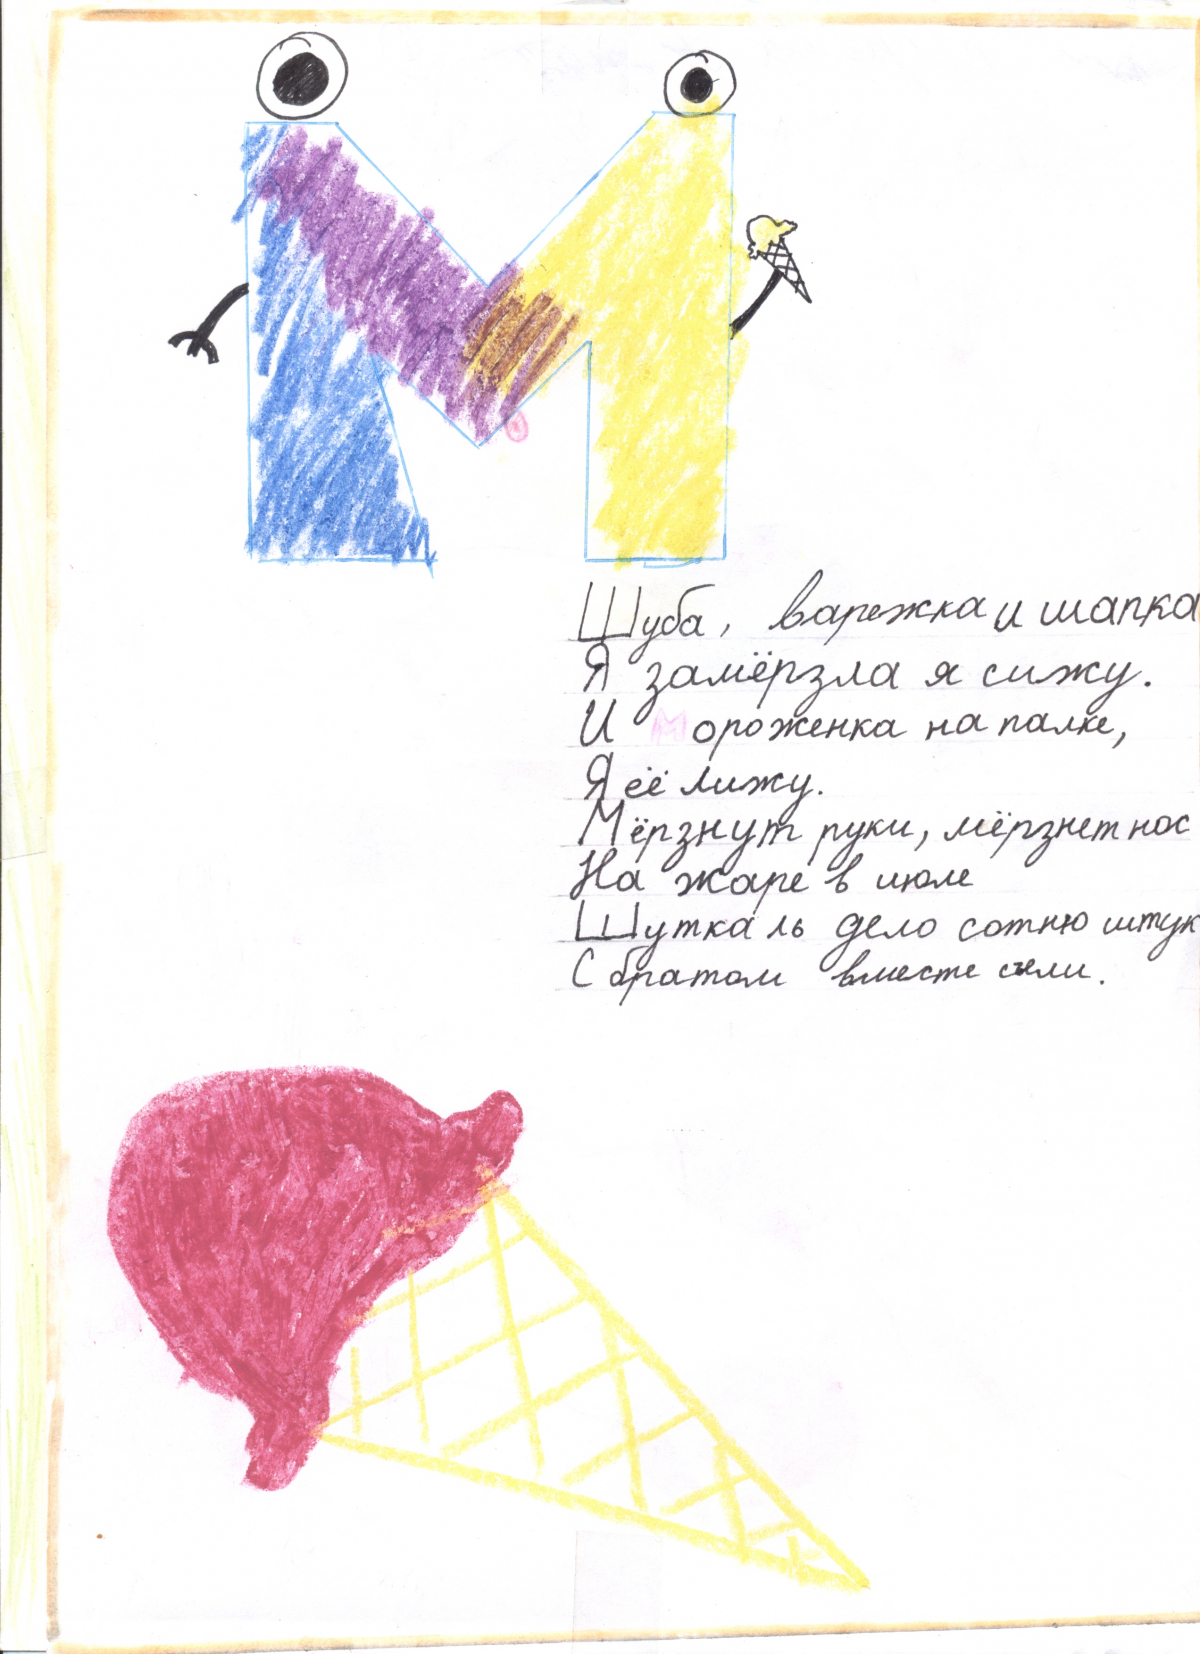 М
Шуба, варежка и шапка
Я замёрзла я сижу.
И Мороженка на палке,
Я её лижу.
Мёрзнут руки, мёрзнет нос
На жаре в июле
Шутка ль дело сотню штук
С братом вместе съели.